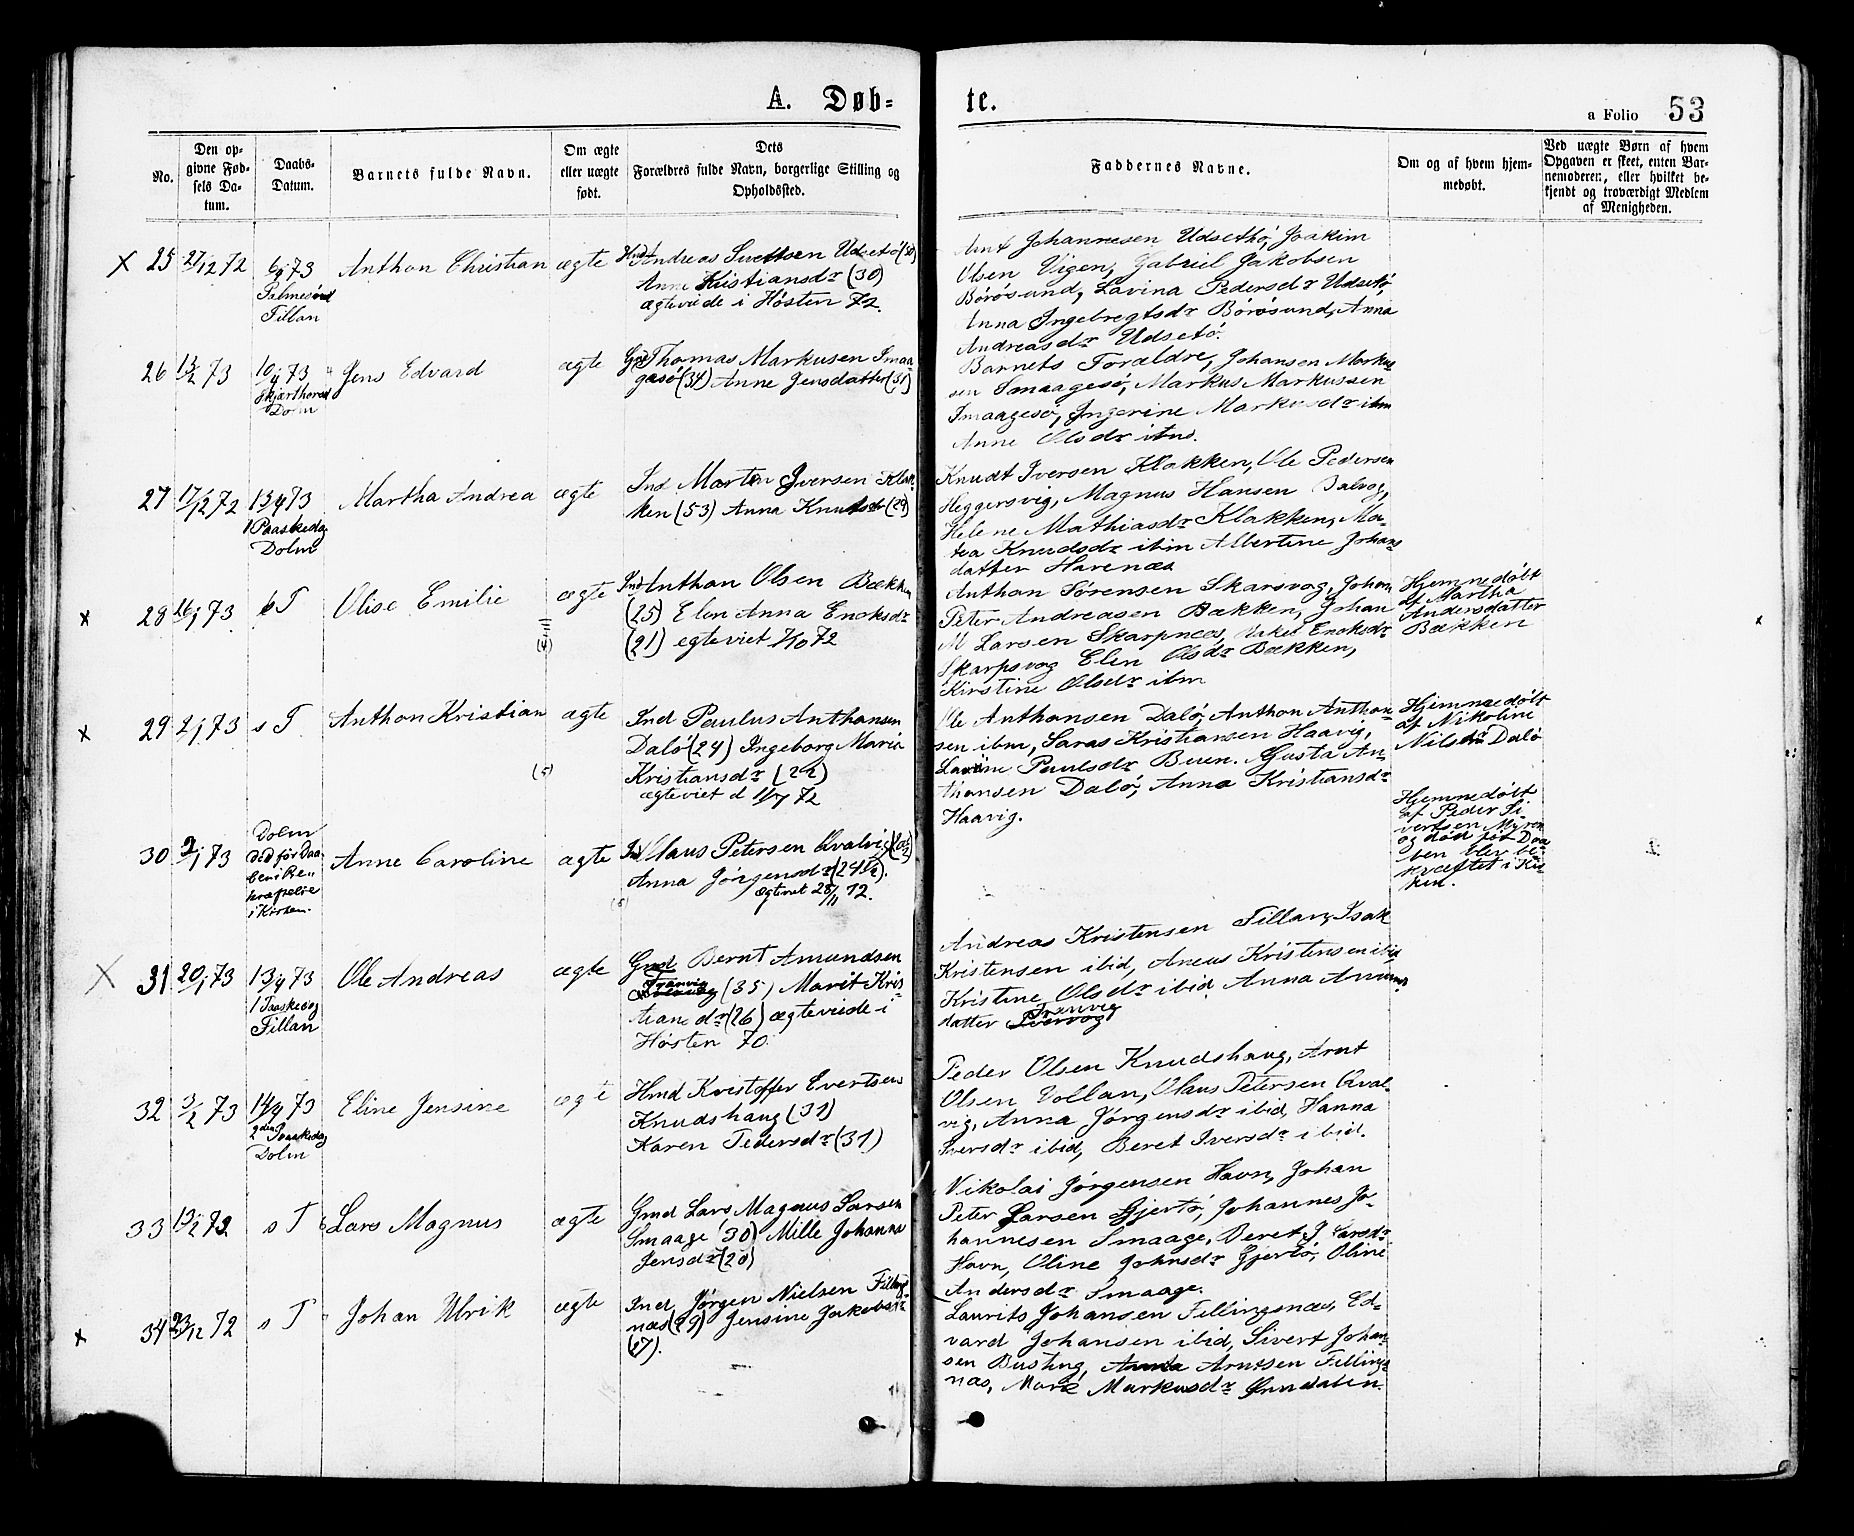 A. Døb=
te.
a Folio 53
No.
Den op=
givne Fød=
sels Da=
tum.
Daabs=
Datum.
Barnets fulde Navn.
Om ægte
eller uægte
født.
Dets
Forældres fulde Navn, borgerlige Stilling og
Opholdssted.
Faddernes Navne.
Om og af hvem hjem=
medøbt.
Ved uægte Børn af hvem
Opgaven er skeet, enten Bar=
nemoderen, eller hvilket be=
kjendt og troværdigt Medlem
af Menigheden.
X 25 27/12 72
6/4 73
Palmesønd
Fillan
Anthon Christian
ægte
Hmd Andreas Udsetø (50)
Anne Kristiansdr (30)
ægteviede i Høsten 72.
Arnt Johannesen Udsethø, Joakim
Olsen Vigen, Gabriel Jakobsen
Børøsund, Lavina Pedersdr Udsetø,
Anna Ingebregtsdr Børøsund, Anna
Andreasdr Udsetø.
26 13/2 73
10/4 73
Skjærthorsd
Dolm
Jens Edvard
ægte
Thomas Markusen Smaa
gesø (34) Anne Jensdatter (31)
Barnets Forældre, Johansen Marku
sen Smaagesø, Markus Markussen
Smaagesø, Ingerine Markusdr ibm
Anne Olsdr ibm.
27 17/12 72
13/4 73
1 Paaskedag
Dolm
Martha Andrea
ægte
Ind Morten Iversen Klak
ken (53) Anna Knutsdr (29)
Knudt Iversen Klakken, Ole Pedersen
Heggersvig, Magnus Hansen Balvog,
Helene Mathiasdr Klakken, Ma=
tea Knudsdr ibm Albertine Johans
datter Havenæs
x 28 26/1 73
s T
Olise Emilie
ægte
Ind Anthon Olsen Bækken
(25) Elen Anna Enoksdr
(21) egteviet 1/10 72
Anthon Sørensen Skarsvog, Johan
Peter Andreasen Bækken, Johan
M Larsen Skarpnæs, Enoksdr
Skarpsvog Elen Olsdr Bækken,
Kirstine Olsdr ibm
Hjemmedøbt
af Martha
Andersdatter
Bækken
x 29 2/1 73
s T
Anthon Kristian
ægte
(5)
Ind Paulus Anthonsen
Dalø (24) Ingeborg Maria
Kristiansdr (22)
ægteviet d 1/7 72
Ole Anthonsen Dalø, Anthon Anthon=
sen ibm, Saras Kristiansen Haavig,
Lavine Paulsdr Buen. Gusta An=
thonsen Dalø, Anna Kristiansdr
Haavig.
Hjemmedøbt
af Nikoline
Nilsdr Dalø
30 2/1 73
Dolm
død før Daa
ben i Be=
kræftelse
i Kirken.
Anne Caroline
ægte
Ind Claus Petersen Qvalvig
Anna Jørgensdr (24½).
ægteviet 28/11 72.
Hjemmedøbt
af Peder Si
vertsen Myren
og død før Daa
ben blev be=
kræftet i Kir
ken.
X 31 20/1 73
13/4 73
1 Paaskedag
Fillan
Ole Andreas
ægte
Gmd Bernt Amundsen
Tranvig
(35) Marit Kris=
tiansdr (26) ægteviede i
Høsten 70.
Andreas Kristensen Fillan, Isak
Kristensen ibid, Aneus Kristensen ibid
Kristine Olsdr ibid, Anna Amunds
datter Tranvig
32 3/2 73
14/4 73
2den Paaskedag
Dolm
Eline Jensine
ægte
Hmd Kristoffer Evertsen
Knudshaug (31)
Karen Pedersdr (31)
Peder Olsen Knudshaug, Arnt
Olsen Vollan, Claus Petersen Qval=
vig, Anna Jørgensdr ibid, Hanna
Iversdr ibid, Beret Iversdr ibid.
33 13/12 72
s T
Lars Magnus
ægte
Gmd Lars Magnus Larsen
Smaage (30) Mille Johanna
Jensdr (20)
Nikolai Jørgensen Havn, Johan
Peter Larsen Gjertø, Johannes Jo=
hannesen Smaage, Beret J Larsdr
Havn, Oline Johnsdr Gjertø, Oline
Andersdr Smaage.
x 34 23/12 72
s T
Johan Ulrik
ægte
Ind Jørgen Nielsen Filling
næs (29) Jensine Jakobsdr
(27).
Laurits Johansen Fillingsnæs, Ed=
vard Johansen ibid, Sivert Johan
sen Busting, Arntsen Fillings
næs, Marie Markusdr Grundalen.